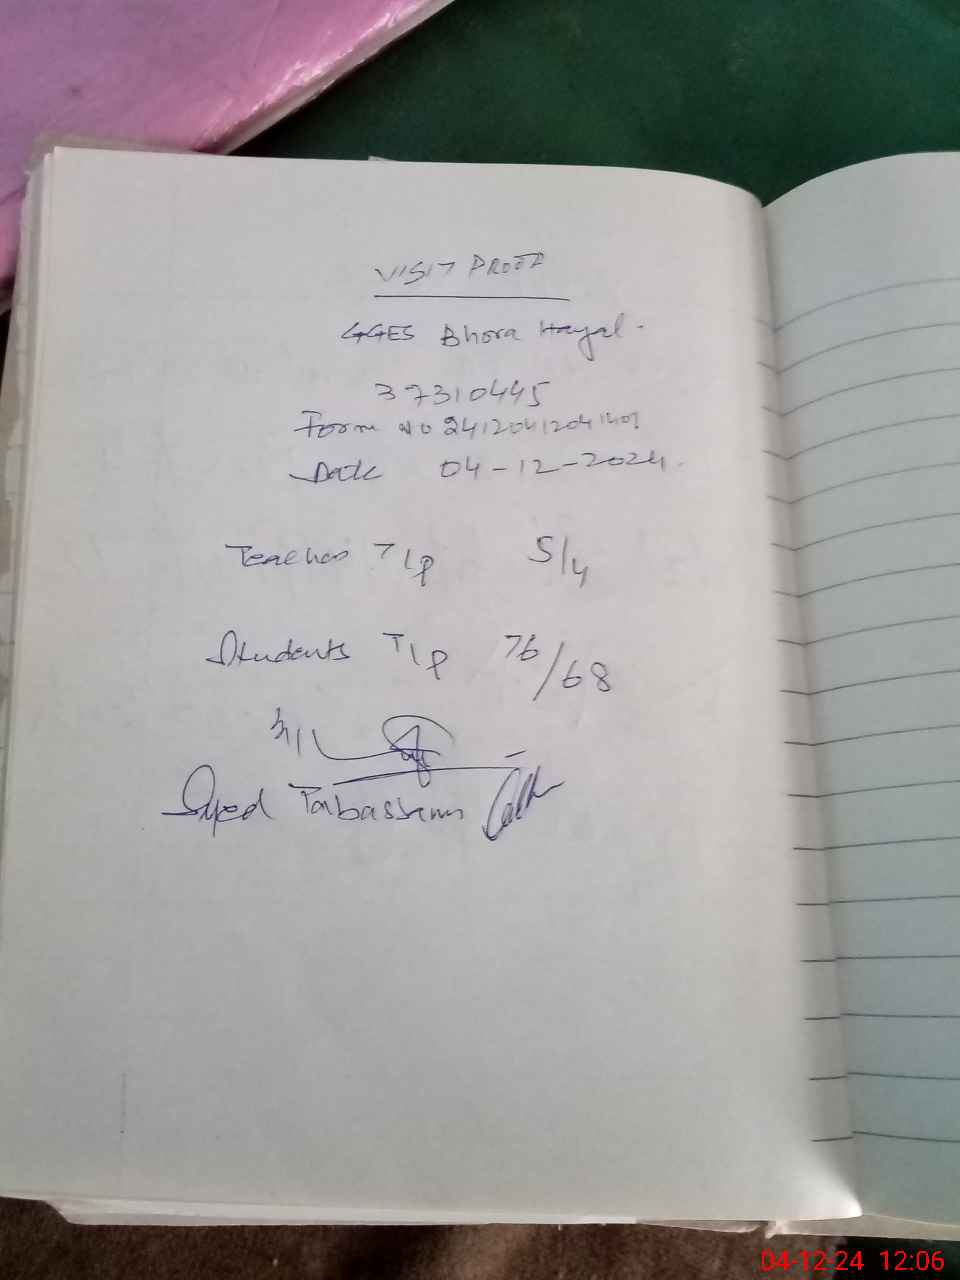 VISIT PROOF
GGES Bhora Hayal.
37310445
Form NO 24120412041401
Date 04-12-2024.
Teacher T/P 5/4
Students T/P 76/68
Syed Tabassum
04-12-24 12:06